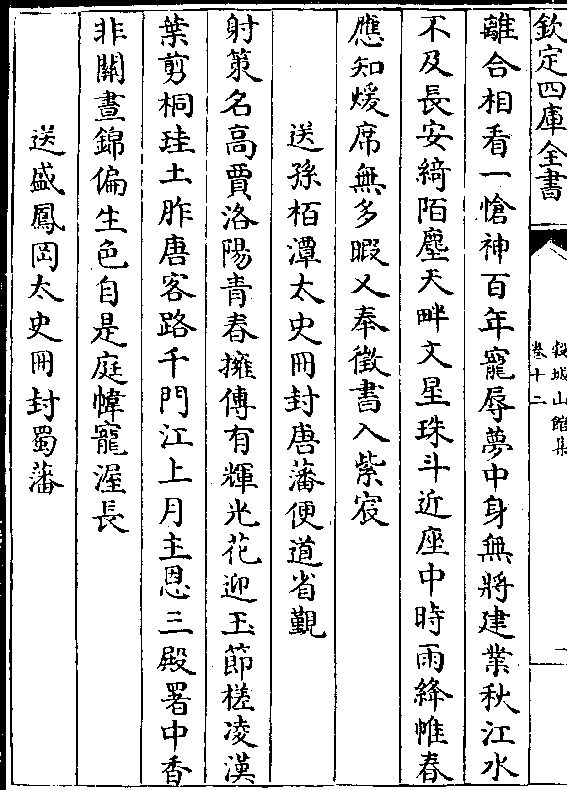 欽定四庫全書
穀城山館集
卷十二
二
離合相看一愴神百年寵辱夢中身無將建業秋江水
不及長安綺陌塵天畔文星珠斗近座中時雨絳帷春
應知煖席無多暇又奉徵書入紫宸
送孫栢潭太史冊封唐藩便道省覲
射䇿名高賈洛陽青春擁傳有輝光花迎玉節槎凌漢
葉剪桐珪土胙唐客路千門江上月主恩三殿署中香
非關晝錦偏生色自是庭幃寵渥長
送盛鳳岡太史冊封蜀藩